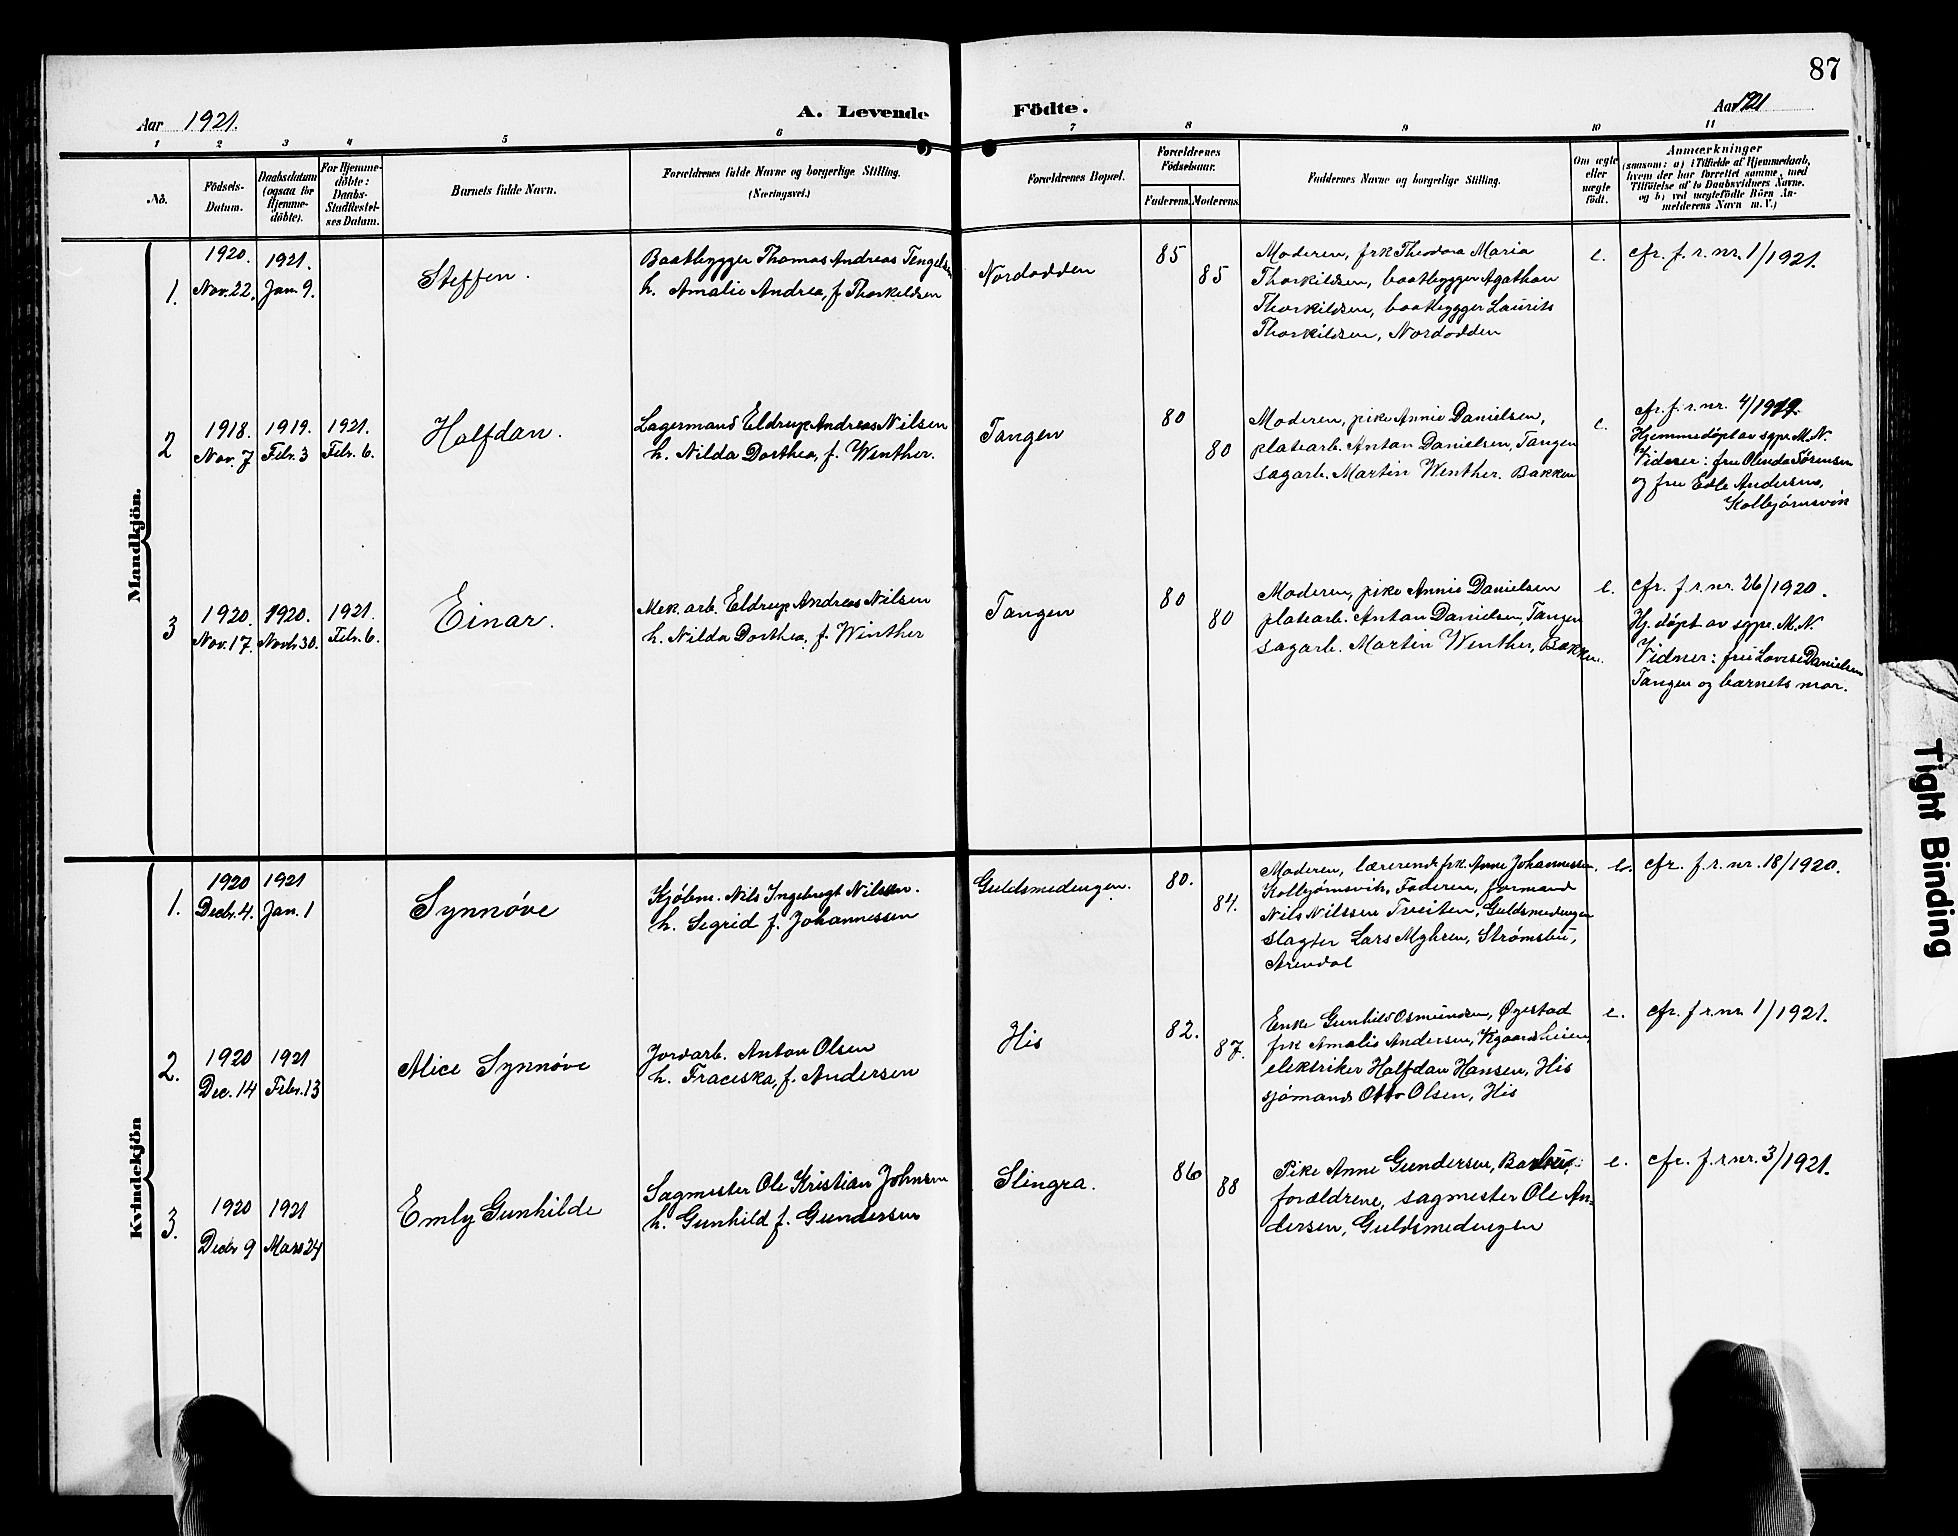 87
Aar 1921.
A. Levende
Födte.
Aar 1921
1 2 3 4 5 6 7 8 9 10 11
No.
Födsels-
Datum.
Daabsdatum
(ogsaa for
Hjemme-
döbte).
For Hjemme-
döbte:
Daabs-
Stadfæstel-
ses Datum.
Barnets fulde Navn.
Forældrenes fulde Navne og borgerlige Stilling.
(Næringsvei.)
Forældrenes Bopæl.
Forældrenes
Födselsaar.
Faderens. Moderens.
Faddernes Navne og borgerlige Stilling.
Om ægte
eller
uægte
födt.
Anmærkninger
(saasom: a) i Tilfælde af Hjemmedaab,
hvem der har forrettet samme, med
Tilföielse af to Daabsvidners Navne.
og b) ved uægtefödte Börn An-
melderens Navn m. V.)
Mandkjön.
1.
1920.
Nov. 22.
1921.
Jan. 9.
Steffen.
Baatbygger Thomas Andreas Tengelsen
h. Amalie Andrea, f. Thorkildsen
Nordodden
85
85
Moderen, frk Theodora Maria
Thorkildsen, baatbygger Agathon
Thorkildsen, baatbygger Laurits
Thorkildsen, Nordodden
e.
cfr. f. r. nr. 1/1921.
2
1918.
Nov. 7
1919.
Febr. 3
1921.
Febr. 6.
Halfdan.
Lagermand Eldrup Andreas Nilsen
h. Nilda Dorthea, f. Winther.
Tangen
80
80
Moderen, pike Annie Danielsen,
platearb. Anton Danielsen, Tangen
sagarb. Martin Winther. Bakken
e.
cfr. f. r. nr. 4/1919.
Hjemmedøpt av sgpr. M. N.
Vidner: frue Olinda Sørensen
og frue Edle Andersen,
Kolbjørnsvik
3
1920.
Nov. 17.
1920.
Novb 30.
1921.
Febr. 6.
Einar.
Mek. arb. Eldrup Andreas Nilsen
h. Nilda Dorthea, f. Winther
Tangen
80
80
Moderen, pike Annie Danielsen
platearb. Anton Danielsen, Tangen
sagarb. Martin Winther, Bakken.
e.
cfr. f. r. nr. 26/1920.
Hj. døpt av sgpr. M. N.
Vidner: frue Lovise Danielsen
Tangen og barnets mor.
Kvindekjön
1.
1920
Decbr. 4.
1921
Jan. 1
Synnøve
Kjøbm. Nils Ingebrigt Nilssen.
h. Sigrid f. Johannessen
Guldsmedengen.
80.
84.
Moderen, lærerinde frk. Anne Johannessen
Kolbjørnsvik, Faderen, formand
Nils Nilssen Tveiten, Guldsmedengen
slagter Lars Myhren, Strømsbu,
Arendal
e.
cfr. f. r. nr. 18/1920.
2.
1920
Dec. 14
1921
Febr. 13
Alice Synnøve
Jordarb. Anton Olsen
h. Fraciska, f. Andersen
His
82.
87.
Enke Gunhild Osmundsen, Øyestad
frk Amalie Andersen,
elektriker Halfdan Hansen, His
sjømand Otto Olsen, His
e.
cfr. f. r. nr. 1/1921.
3.
1920
Decbr 9
1921
Mars 24
Emly Gunhilde
Sagmester Ole Kristian Johnsen
h. Gunhild f. Gundersen
Slingra.
86
88
Pike Anne Gundersen, Barbu,
forældrene, sagmester Ole An-
dersen, Guldsmedengen
e.
cfr. f. r. nr. 3/1921.
Tight Binding